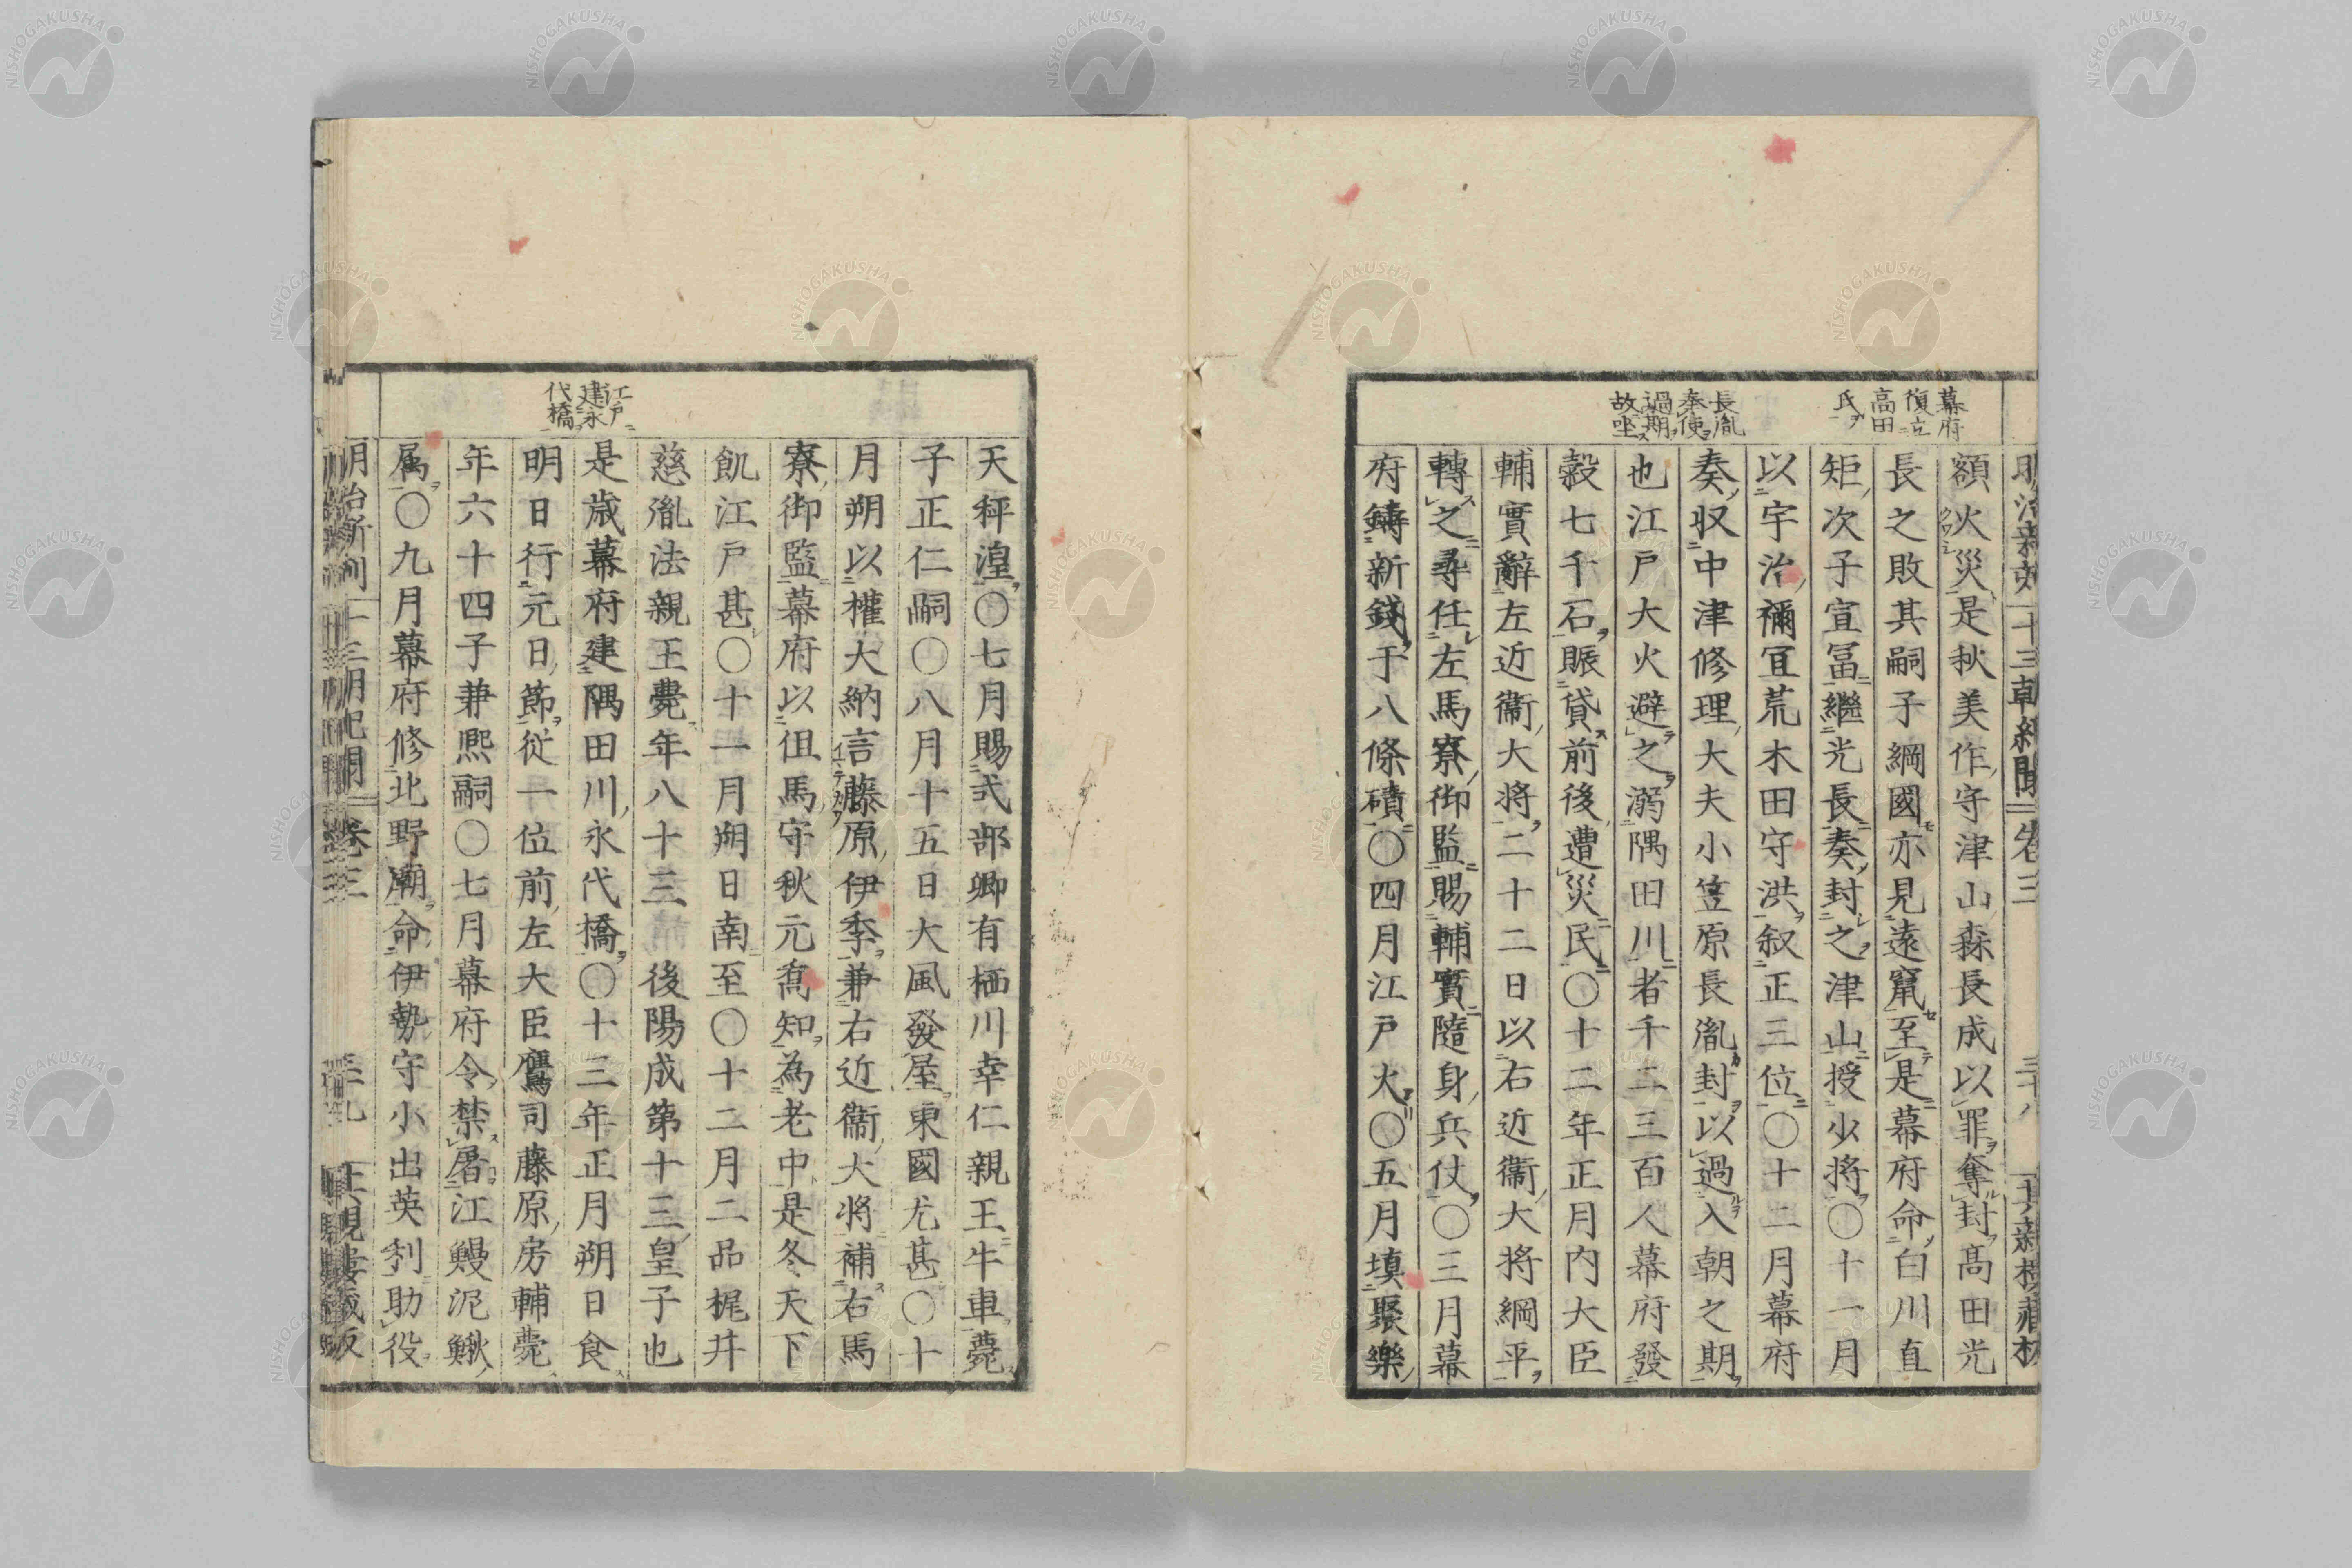 幕府
復立
高田
氏
長胤
奉使
過期
故坐
額火災是秋美作守津山森長成以罪奪封高田光
長之敗其嗣子綱國亦見遠竄至是幕府命白川直
矩次子宣冨繼光長奏封之津山授少将〇十一月
以宇治禰宜荒木田守洪叙正三位〇十二月幕府
奏収中津修理大夫小笠原長胤封以過入朝之期
也江戸大火避之溺隅田川者千二三百人幕府發
糓七千石賑貸前後遭災民〇十二年正月内大臣
輔實辭左近衞大将二十二日以右近衞大将綱平
轉之尋任左馬寮御監賜輔實隨身兵仗〇三月幕
府鑄新錢于八條磧〇四月江戸大〇五月填聚樂
江戸
建永
代橋
天秤湟〇七月賜式部卿有栖川幸仁親王牛車薨
子正仁嗣〇八月十五日大風發屋東國尤甚〇十
月朔以權大納言藤原伊季兼右近衞大将補右馬
寮御監幕府以但馬守秋元喬知為老中是冬天下
飢江戸甚〇十一月朔日南至〇十二月二品梶井
慈胤法親王薨年八十三後陽成第十三皇子也
是歳幕府建隅田川永代橋〇十三年正月朔日食
明日行元日節従一位前左大臣鷹司藤原房輔薨
年六十四子兼熈嗣〇七月幕府令禁屠江鰻泥鰍
属〇九月幕府修北野廟命伊勢守小出英利助役